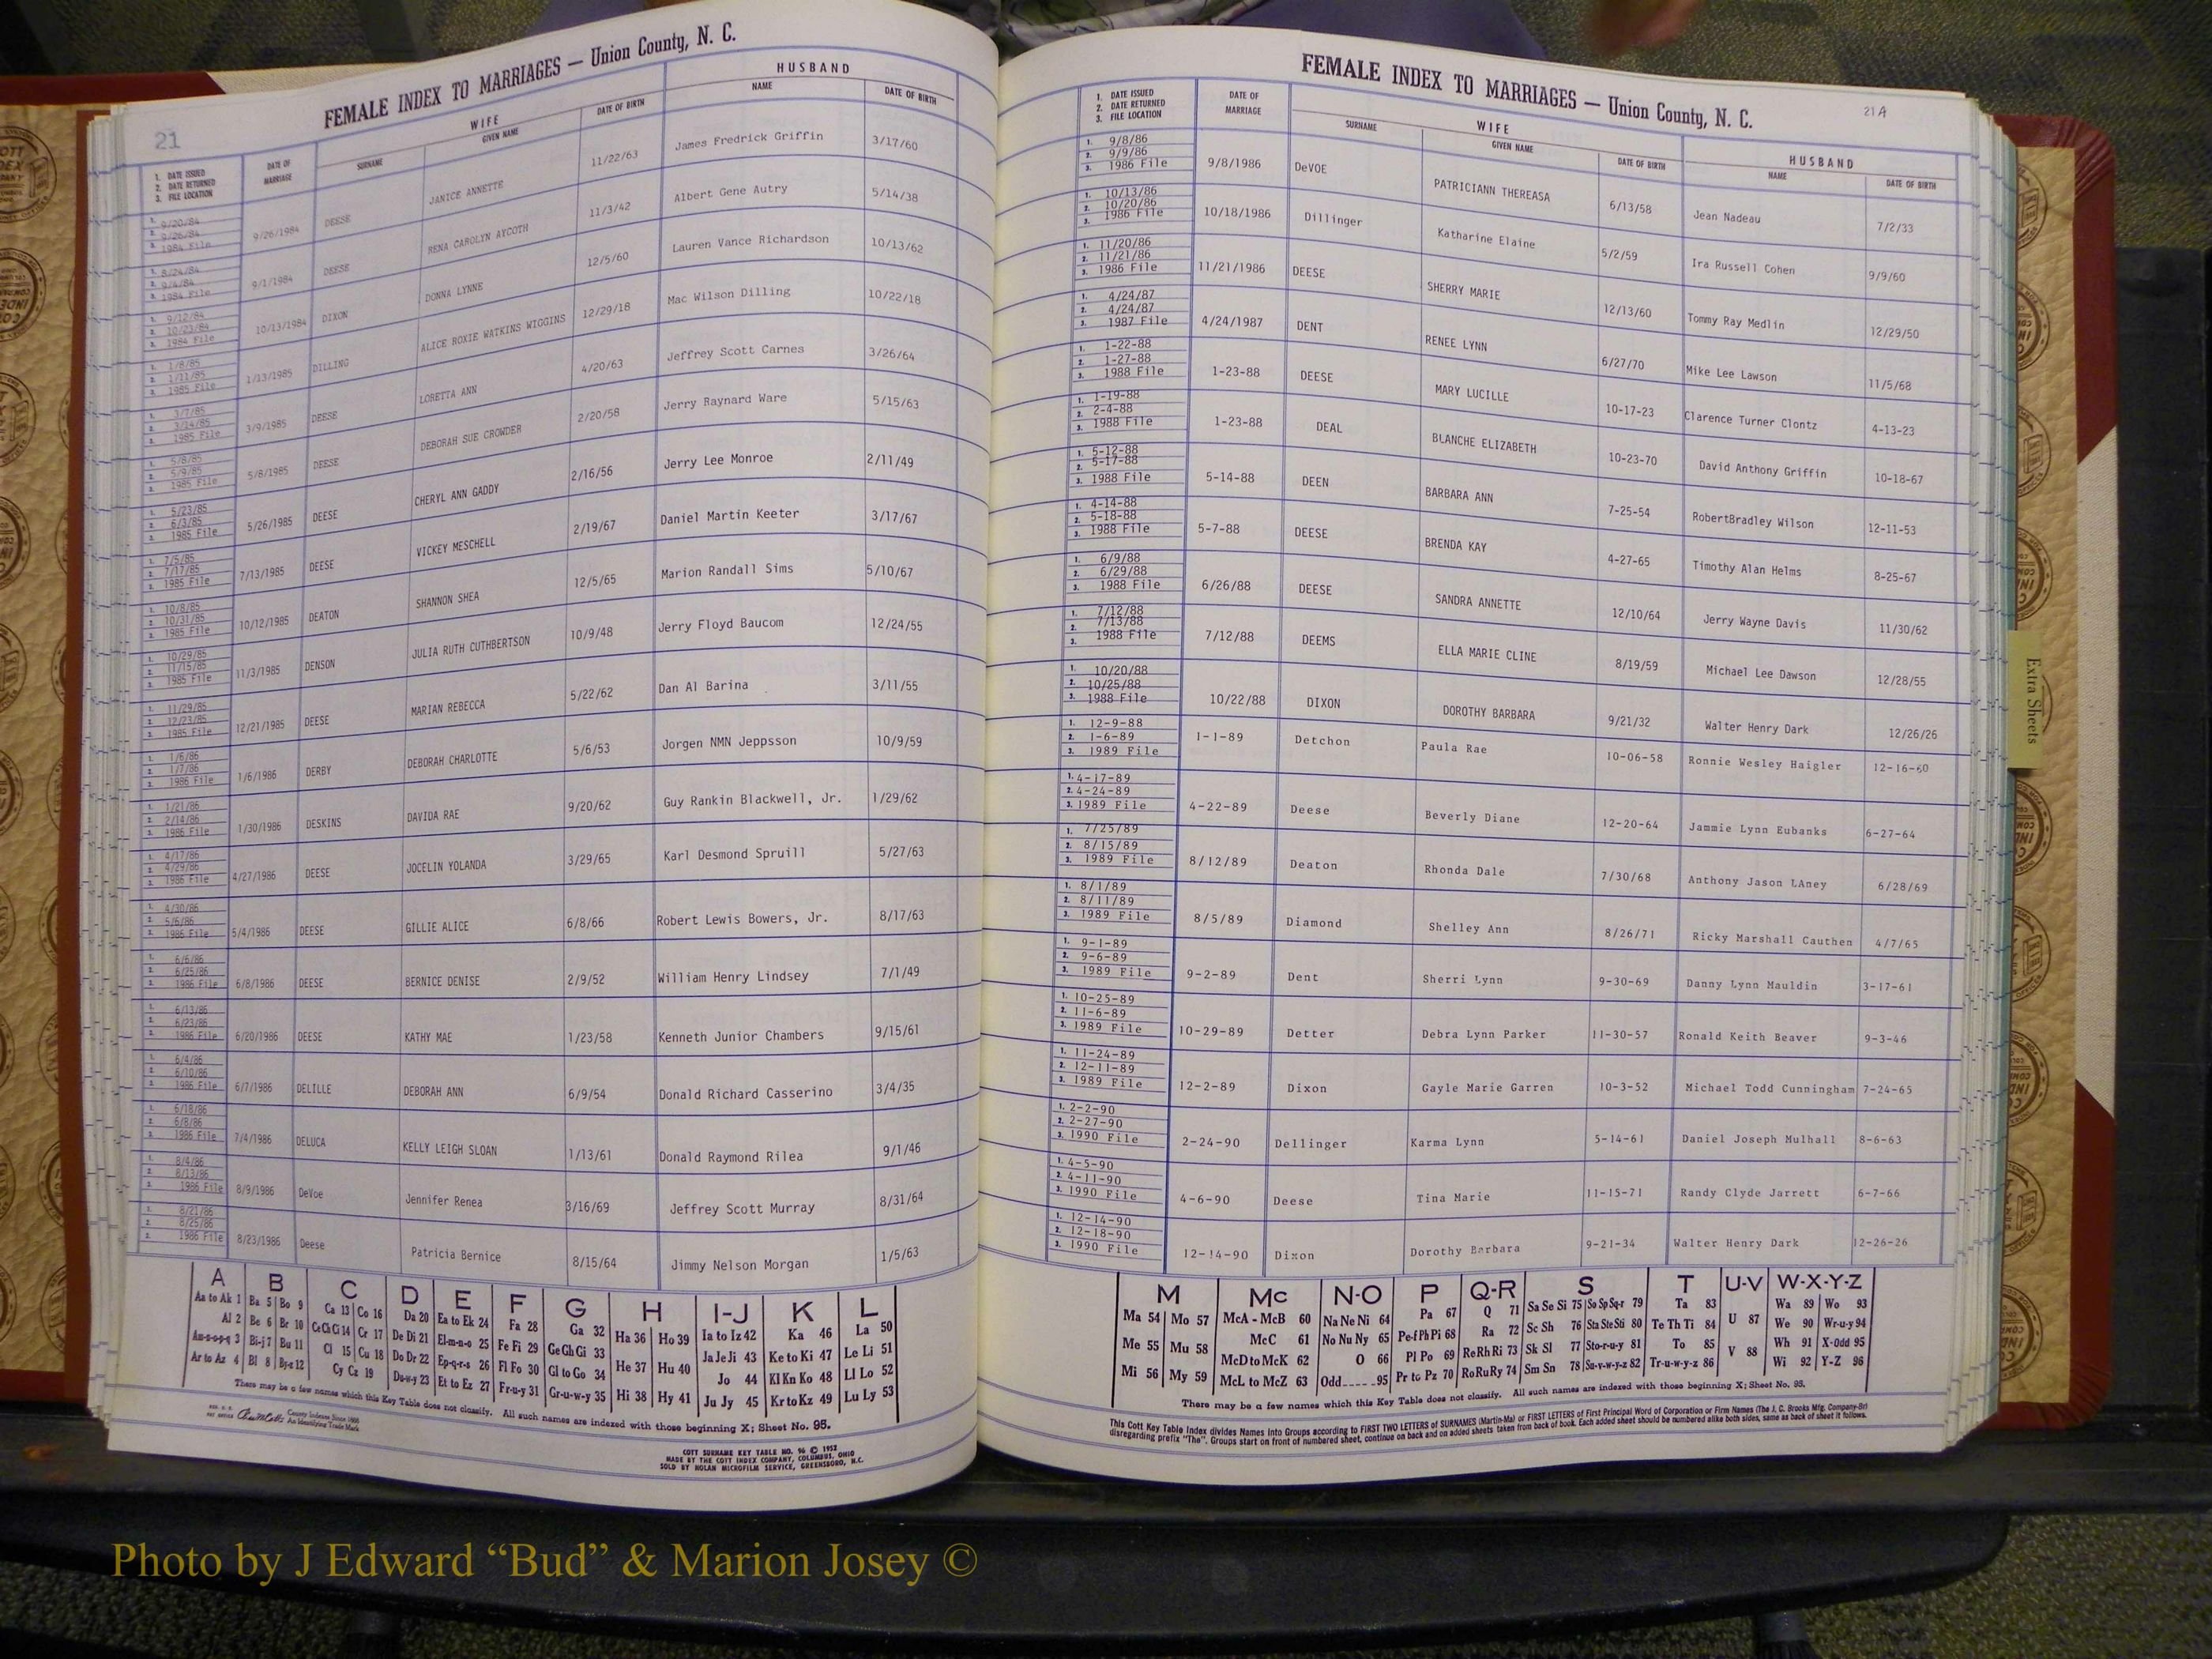 21
FEMALE INDEX TO MARRIAGES — Union County, N. C.
WIFE HUSBAND
1. DATE ISSUED 2. DATE RETURNED 3. FILE LOCATION DATE OF MARRIAGE SURNAME GIVEN NAME DATE OF BIRTH NAME DATE OF BIRTH
1. 9/20/84 2. 9/26/84 3. 1984 File 9/26/1984 DEESE JANICE ANNETTE 11/22/63 James Fredrick Griffin 3/17/60
1. 8/24/84 2. 9/4/84 3. 1984 File 9/1/1984 DEESE RENA CAROLYN AYCOTH 11/3/42 Albert Gene Autry 5/14/38
1. 9/12/84 2. 10/23/84 3. 1984 File 10/13/1984 DIXON DONNA LYNNE 12/5/60 Lauren Vance Richardson 10/13/62
1. 1/8/85 2. 1/11/85 3. 1985 File 1/13/1985 DILLING ALICE ROXIE WATKINS WIGGINS 12/29/18 Mac Wilson Dilling 10/22/18
1. 3/7/85 2. 3/14/85 3. 1985 File 3/9/1985 DEESE LORETTA ANN 4/20/63 Jeffrey Scott Carnes 3/26/64
1. 5/8/85 2. 5/9/85 3. 1985 File 5/8/1985 DEESE DEBORAH SUE CROWDER 2/20/58 Jerry Raynard Ware 5/15/63
1. 5/23/85 2. 6/3/85 3. 1985 File 5/26/1985 DEESE CHERYL ANN GADDY 2/16/56 Jerry Lee Monroe 2/11/49
1. 7/5/85 2. 7/17/85 3. 1985 File 7/13/1985 DEESE VICKEY MESCHELL 2/19/67 Daniel Martin Keeter 3/17/67
1. 10/8/85 2. 10/31/85 3. 1985 File 10/12/1985 DEATON SHANNON SHEA 12/5/65 Marion Randall Sims 5/10/67
1. 10/29/85 2. 11/15/85 3. 1985 File 11/3/1985 DENSON JULIA RUTH CUTHBERTSON 10/9/48 Jerry Floyd Baucom 12/24/55
1. 11/29/85 2. 12/23/85 3. 1985 File 12/21/1985 DEESE MARIAN REBECCA 5/22/62 Dan Al Barina 3/11/55
1. 1/6/86 2. 1/7/86 3. 1986 File 1/6/1986 DERBY DEBORAH CHARLOTTE 5/6/53 Jorgen NMN Jeppsson 10/9/59
1. 1/21/86 2. 2/14/86 3. 1986 File 1/30/1986 DESKINS DAVIDA RAE 9/20/62 Guy Rankin Blackwell, Jr. 1/29/62
1. 4/17/86 2. 4/29/86 3. 1986 File 4/27/1986 DEESE JOCELIN YOLANDA 3/29/65 Karl Desmond Spruill 5/27/63
1. 4/30/86 2. 5/6/86 3. 1986 File 5/4/1986 DEESE GILLIE ALICE 6/8/66 Robert Lewis Bowers, Jr. 8/17/63
1. 6/6/86 2. 6/25/86 3. 1986 File 6/8/1986 DEESE BERNICE DENISE 2/9/52 William Henry Lindsey 7/1/49
1. 6/13/86 2. 6/23/86 3. 1986 File 6/20/1986 DEESE KATHY MAE 1/23/58 Kenneth Junior Chambers 9/15/61
1. 6/4/86 2. 6/10/86 3. 1986 File 6/7/1986 DELILLE DEBORAH ANN 6/9/54 Donald Richard Casserino 3/4/35
1. 6/18/86 2. 6/8/86 3. 1986 File 7/4/1986 DELUCA KELLY LEIGH SLOAN 1/13/61 Donald Raymond Rilea 9/1/46
1. 8/4/86 2. 8/13/86 3. 1986 File 8/9/1986 DeVoe Jennifer Renea 3/16/69 Jeffrey Scott Murray 8/31/64
1. 8/21/86 2. 8/25/86 3. 1986 File 8/23/1986 Deese Patricia Bernice 8/15/64 Jimmy Nelson Morgan 1/5/63
A B C D E F G H I-J K L
Aa to Ak 1 Ba 5 Bo 9 Ca 13 Co 16 Da 20 Ea to Ek 24 Fa 28 Ga 32 Ha 36 Ho 39 Ia to Iz 42 Ka 46 La 50
Al 2 Be 6 Br 10 Ce Ch Ci 14 Cr 17 De Di 21 El-m-n-o 25 Fe Fi 29 Ge Gh Gi 33 He 37 Hu 40 Ja Je Ji 43 Ke to Ki 47 Le Li 51
Am-n-o-p-q 3 Bi-j 7 Bu 11 Cl 15 Cu 18 Do Dr 22 Ep-q-r-s 26 Fl Fo 30 Gl to Go 34 Hi 38 Hy 41 Jo 44 Kl Kn Ko 48 Ll Lo 52
Ar to Az 4 Bl 8 By-z 12 Cy Cz 19 Du-w-y 23 Et to Ez 27 Fr-u-y 31 Gr-u-w-y 35 Ju Jy 45 Kr to Kz 49 Lu Ly 53
There may be a few names which this Key Table does not classify. All such names are indexed with those beginning X; Sheet No. 95.
County Indexes Since 1888
An Identifying Trade Mark
COTT SURNAME KEY TABLE NO. 96 © 1952
MADE BY THE COTT INDEX COMPANY, COLUMBUS, OHIO
SOLD BY NOLAN MICROFILM SERVICE, GREENSBORO, N.C.
FEMALE INDEX TO MARRIAGES — Union County, N. C.
21A
WIFE HUSBAND
1. DATE ISSUED 2. DATE RETURNED 3. FILE LOCATION DATE OF MARRIAGE SURNAME GIVEN NAME DATE OF BIRTH NAME DATE OF BIRTH
1. 9/8/86 2. 9/9/86 3. 1986 File 9/8/1986 DeVOE PATRICIANN THEREASA 6/13/58 Jean Nadeau 7/2/33
1. 10/13/86 2. 10/20/86 3. 1986 File 10/18/1986 Dillinger Katharine Elaine 5/2/59 Ira Russell Cohen 9/9/60
1. 11/20/86 2. 11/21/86 3. 1986 File 11/21/1986 DEESE SHERRY MARIE 12/13/60 Tommy Ray Medlin 12/29/50
1. 4/24/87 2. 4/24/87 3. 1987 File 4/24/1987 DENT RENEE LYNN 6/27/70 Mike Lee Lawson 11/5/68
1. 1-22-88 2. 1-27-88 3. 1988 File 1-23-88 DEESE MARY LUCILLE 10-17-23 Clarence Turner Clontz 4-13-23
1. 1-19-88 2. 2-4-88 3. 1988 File 1-23-88 DEAL BLANCHE ELIZABETH 10-23-70 David Anthony Griffin 10-18-67
1. 5-12-88 2. 5-17-88 3. 1988 File 5-14-88 DEEN BARBARA ANN 7-25-54 RobertBradley Wilson 12-11-53
1. 4-14-88 2. 5-18-88 3. 1988 File 5-7-88 DEESE BRENDA KAY 4-27-65 Timothy Alan Helms 8-25-67
1. 6/9/88 2. 6/29/88 3. 1988 File 6/26/88 DEESE SANDRA ANNETTE 12/10/64 Jerry Wayne Davis 11/30/62
1. 7/12/88 2. 7/13/88 3. 1988 File 7/12/88 DEEMS ELLA MARIE CLINE 8/19/59 Michael Lee Dawson 12/28/55
1. 10/20/88 2. 10/25/88 3. 1988 File 10/22/88 DIXON DOROTHY BARBARA 9/21/32 Walter Henry Dark 12/26/26
1. 12-9-88 2. 1-6-89 3. 1989 File 1-1-89 Detchon Paula Rae 10-06-58 Ronnie Wesley Haigler 12-16-60
1. 4-17-89 2. 4-24-89 3. 1989 File 4-22-89 Deese Beverly Diane 12-20-64 Jammie Lynn Eubanks 6-27-64
1. 7/25/89 2. 8/15/89 3. 1989 File 8/12/89 Deaton Rhonda Dale 7/30/68 Anthony Jason LAney 6/28/69
1. 8/1/89 2. 8/11/89 3. 1989 File 8/5/89 Diamond Shelley Ann 8/26/71 Ricky Marshall Cauthen 4/7/65
1. 9-1-89 2. 9-6-89 3. 1989 File 9-2-89 Dent Sherri Lynn 9-30-69 Danny Lynn Mauldin 3-17-61
1. 10-25-89 2. 11-6-89 3. 1989 File 10-29-89 Detter Debra Lynn Parker 11-30-57 Ronald Keith Beaver 9-3-46
1. 11-24-89 2. 12-11-89 3. 1989 File 12-2-89 Dixon Gayle Marie Garren 10-3-52 Michael Todd Cunningham 7-24-65
1. 2-2-90 2. 2-27-90 3. 1990 File 2-24-90 Dellinger Karma Lynn 5-14-61 Daniel Joseph Mulhall 8-6-63
1. 4-5-90 2. 4-11-90 3. 1990 File 4-6-90 Deese Tina Marie 11-15-71 Randy Clyde Jarrett 6-7-66
1. 12-14-90 2. 12-18-90 3. 1990 File 12-14-90 Dixon Dorothy Barbara 9-21-34 Walter Henry Dark 12-26-26
M Mc N-O P Q-R S T U-V W-X-Y-Z
Ma 54 Mo 57 McA - McB 60 Na Ne Ni 64 Pa 67 Q 71 Sa Se Si 75 So Sp Sq-r 79 Ta 83 U 87 Wa 89 Wo 93
Me 55 Mu 58 McC 61 No Nu Ny 65 Pe-f Ph Pi 68 Ra 72 Sc Sh 76 Sta Ste Sti 80 Te Th Ti 84 V 88 We 90 Wr-u-y 94
Mi 56 My 59 McD to McK 62 O 66 Pl Po 69 Re Rh Ri 73 Sk Sl 77 Sto-r-u-y 81 To 85 Wh 91 X-Odd 95
McL to McZ 63 Odd 95 Pr to Pz 70 Ro Ru Ry 74 Sm Sn 78 Su-v-w-y-z 82 Tr-u-w-y-z 86 Wi 92 Y-Z 96
There may be a few names which this Key Table does not classify. All such names are indexed with those beginning X; Sheet No. 95.
This Cott Key Table Index divides Names into Groups according to FIRST TWO LETTERS of SURNAMES (Martin-Ma) or FIRST LETTERS of First Principal Word of Corporation or Firm Names (The J. C. Brooks Mfg. Company-Br)
disregarding prefix "The". Groups start on front of numbered sheet, continue on back and on added sheets taken from back of book. Each added sheet should be numbered alike both sides, same as back of sheet it follows.
Extra Sheets
Photo by J Edward “Bud” & Marion Josey ©